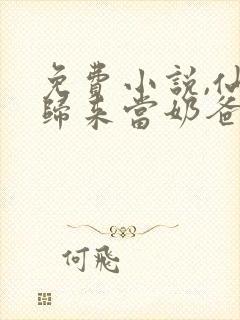 免費小説,仙
歸來當奶爸
何飛